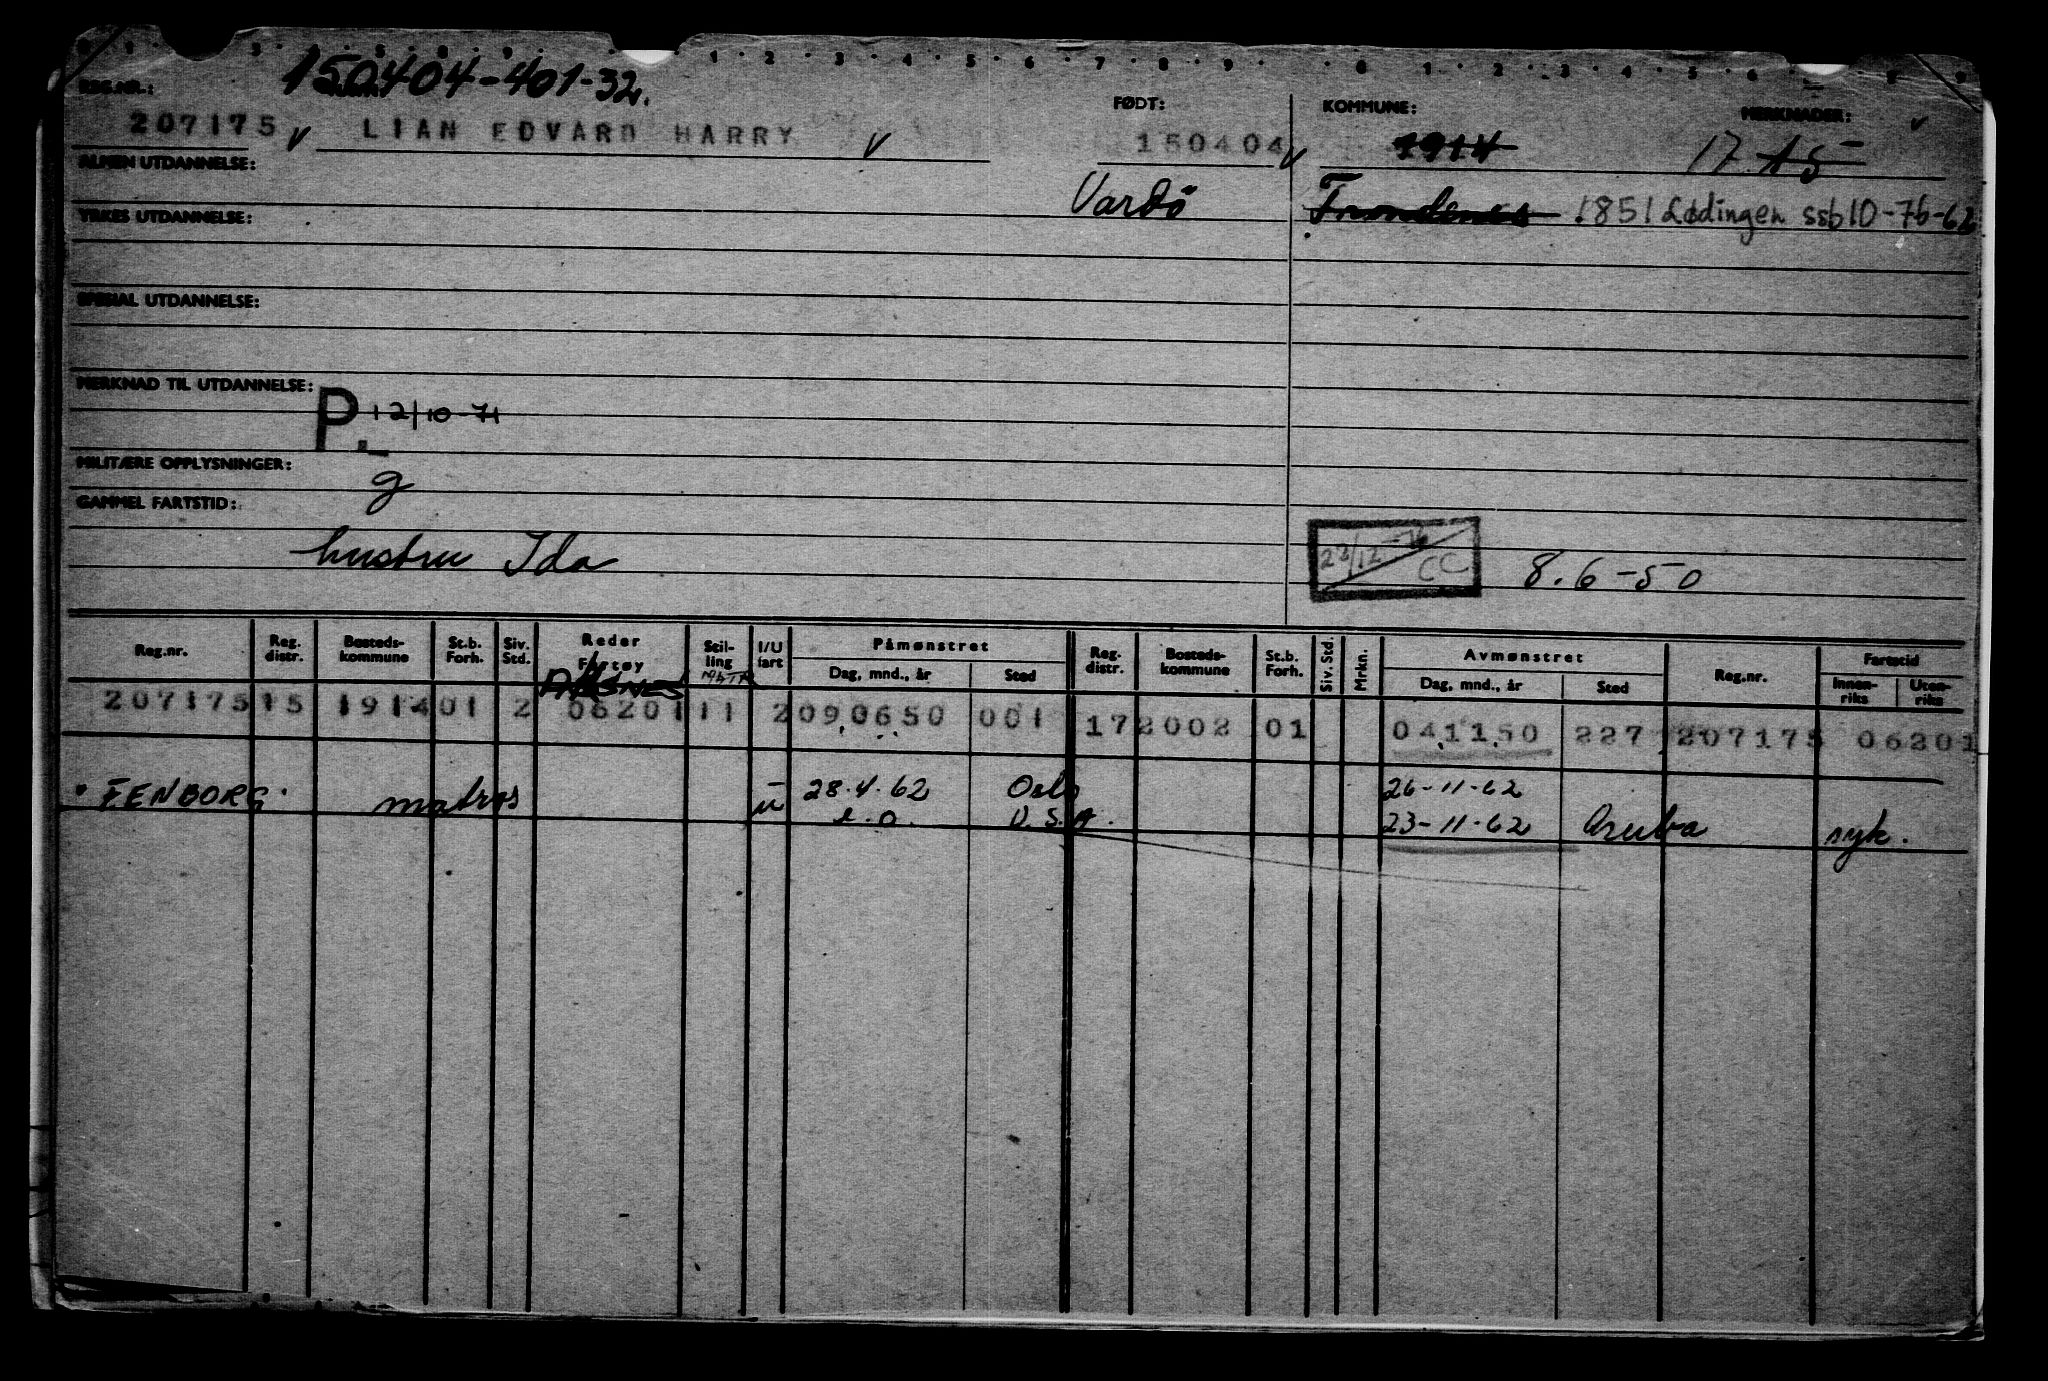 150404-401-32.
REG.NR.: FØDT: KOMMUNE: MERKNADER:
207175 LIAN EDVARD HARRY 150404 1914 17 15
ALMEN UTDANNELSE:
Vardö Trondenes 1851 Lødingen ssb10-76-62
YRKES UTDANNELSE:
SPESIAL UTDANNELSE:
MERKNAD TIL UTDANNELSE:
P. 12/10-71
MILITÆRE OPPLYSNINGER:
g
GAMMEL FARTSTID:
hustru Ida
CC 8.6-50
Reg.nr. Reg. distr. Bosteds-kommune St.b. Forh. Siv. Std. Reder Fartøy Stil-ling I/U fart Påmønstret Dag, mnd., år Sted Reg. distr. Bosteds-kommune St.b. Forh. Siv. Std. Mrkn. Avmønstret Dag, mnd., år Sted Reg.nr. Fartstid Innen-riks Uten-riks
207175 15 1914 01 2 06201 11 2 090650 001 17 2002 01 041150 227 207175 06201
"FENBORG" matros u 28.4.62 Oslo 26-11-62
U.S.A. 23-11-62 Aruba syk.